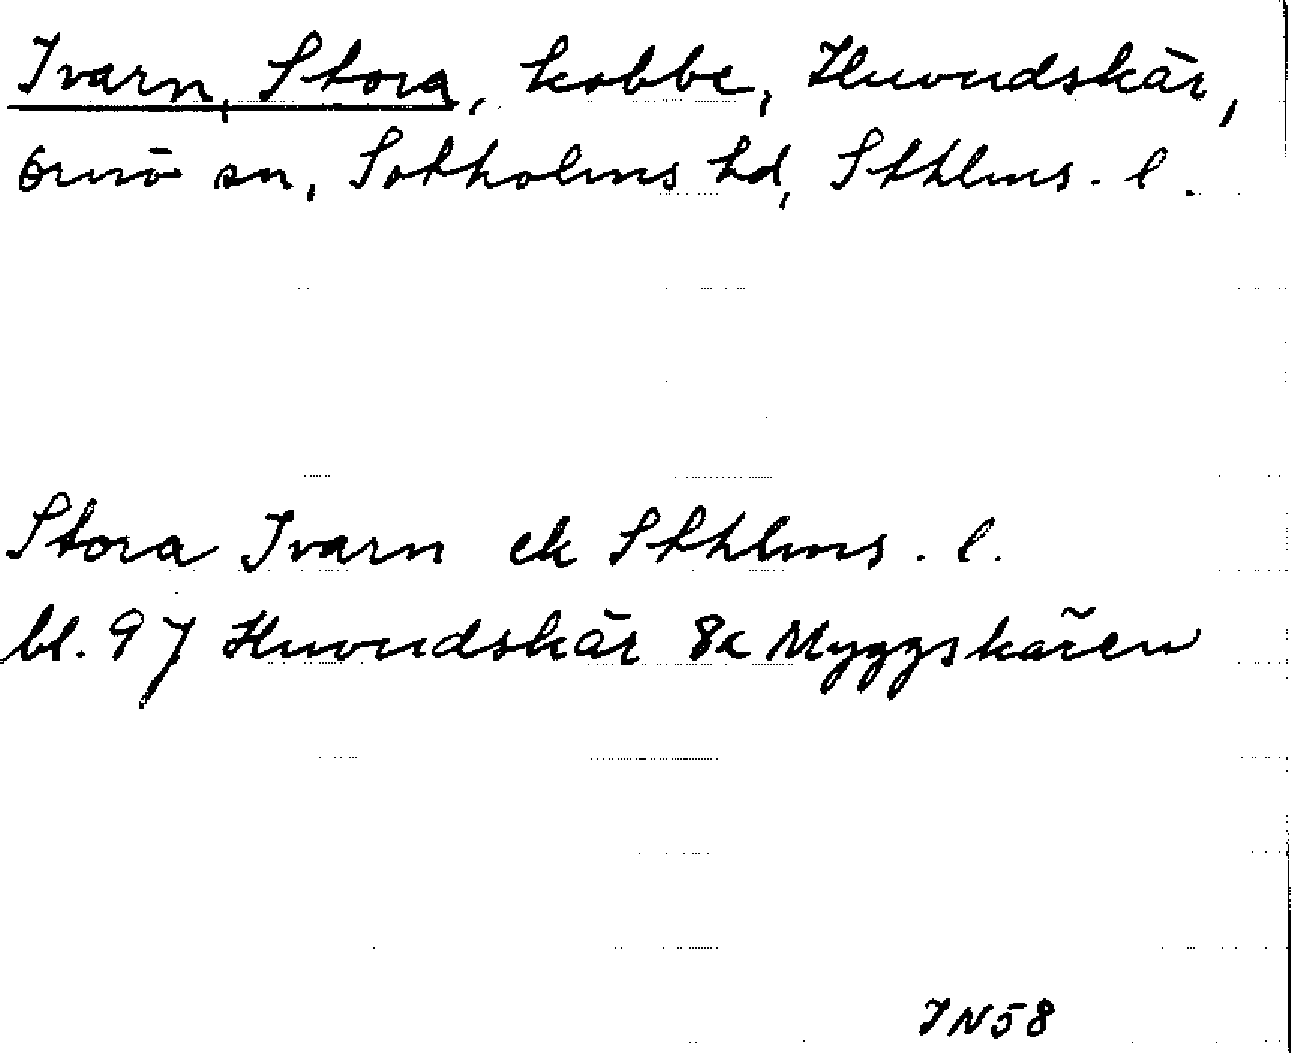 Ivarn, Stora, kobbe, Huvudskär,
Ornö sn, Sotholms hd, Sthlms. l.
Stora Ivarn ek Sthlms. l.
bl. 97 Huvudskär &c Myggskären
IN58